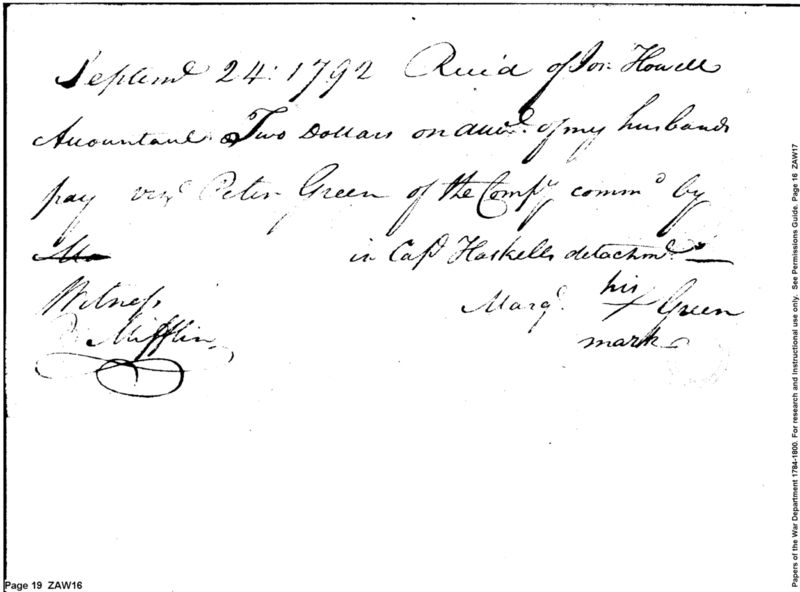 Septemr 24: 1792 Recd of Jos: Howell
Accountant Two Dollars on accot. of my husbands
pay vizt Peter Green of the Compy commd by
in Capt Haskells detachmt.
Witness
Mifflin
Margt. his X Green
mark
Page 19 ZAW16
Papers of the War Department 1784-1800. For research and Instructional use only. See Permissions Guide. Page 16 ZAW17